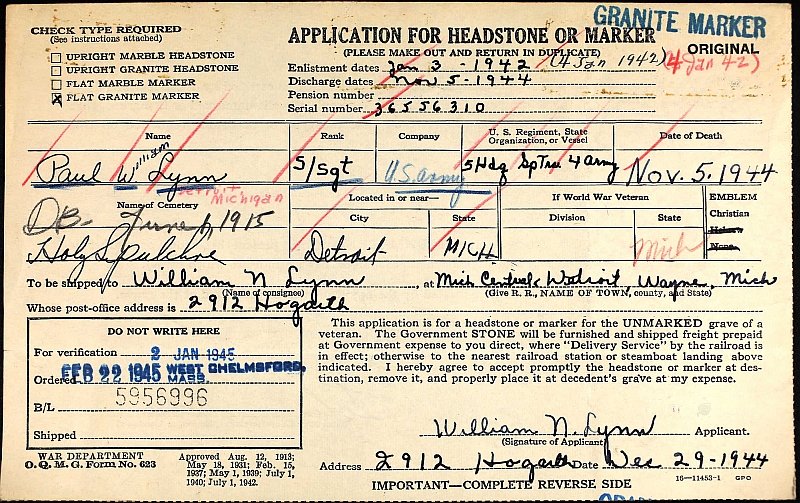 GRANITE MARKER
CHECK TYPE REQUIRED
(See instructions attached)
UPRIGHT MARBLE HEADSTONE
UPRIGHT GRANITE HEADSTONE
FLAT MARBLE MARKER
X FLAT GRANITE MARKER
APPLICATION FOR HEADSTONE OR MARKER
(PLEASE MAKE OUT AND RETURN IN DUPLICATE)
ORIGINAL
Enlistment dates Jan 3 - 1942 (4 Jan 1942) (4 Jan 42)
Discharge dates Nov 5 - 1944
Pension number
Serial number 36556310
Name Rank Company U. S. Regiment, State Organization, or Vessel Date of Death
Paul William Lynn S/Sgt U.S. Army 5 Hdq Sp Trs 4 Army Nov. 5. 1944
Detroit, Michigan
Name of Cemetery Located in or near— If World War Veteran EMBLEM
City State Division State Christian
Hebrew
None
DB- June 1, 1915
Holy Sepulchre Detroit MICH Mich
To be shipped to William N Lynn, at Mich Central Detroit, Wayne, Mich
(Name of consignee) (Give R. R., NAME OF TOWN, county, and State)
Whose post-office address is 2912 Hogarth
DO NOT WRITE HERE
For verification 2 JAN 1945
Ordered FEB 22 1945 WEST CHELMSFORD, MASS.
5956996
B/L
Shipped
This application is for a headstone or marker for the UNMARKED grave of a
veteran. The Government STONE will be furnished and shipped freight prepaid
at Government expense to you direct, where "Delivery Service" by the railroad is
in effect; otherwise to the nearest railroad station or steamboat landing above
indicated. I hereby agree to accept promptly the headstone or marker at des-
tination, remove it, and properly place it at decedent's grave at my expense.
William N. Lynn Applicant.
(Signature of Applicant)
Address 2912 Hogarth Date Dec 29-1944
WAR DEPARTMENT
O. Q. M. G. Form No. 623
Approved Aug. 12, 1913;
May 18, 1931; Feb. 15,
1937; May 1, 1939; July 1,
1940; July 1, 1942.
16—11453-1 GPO
IMPORTANT—COMPLETE REVERSE SIDE